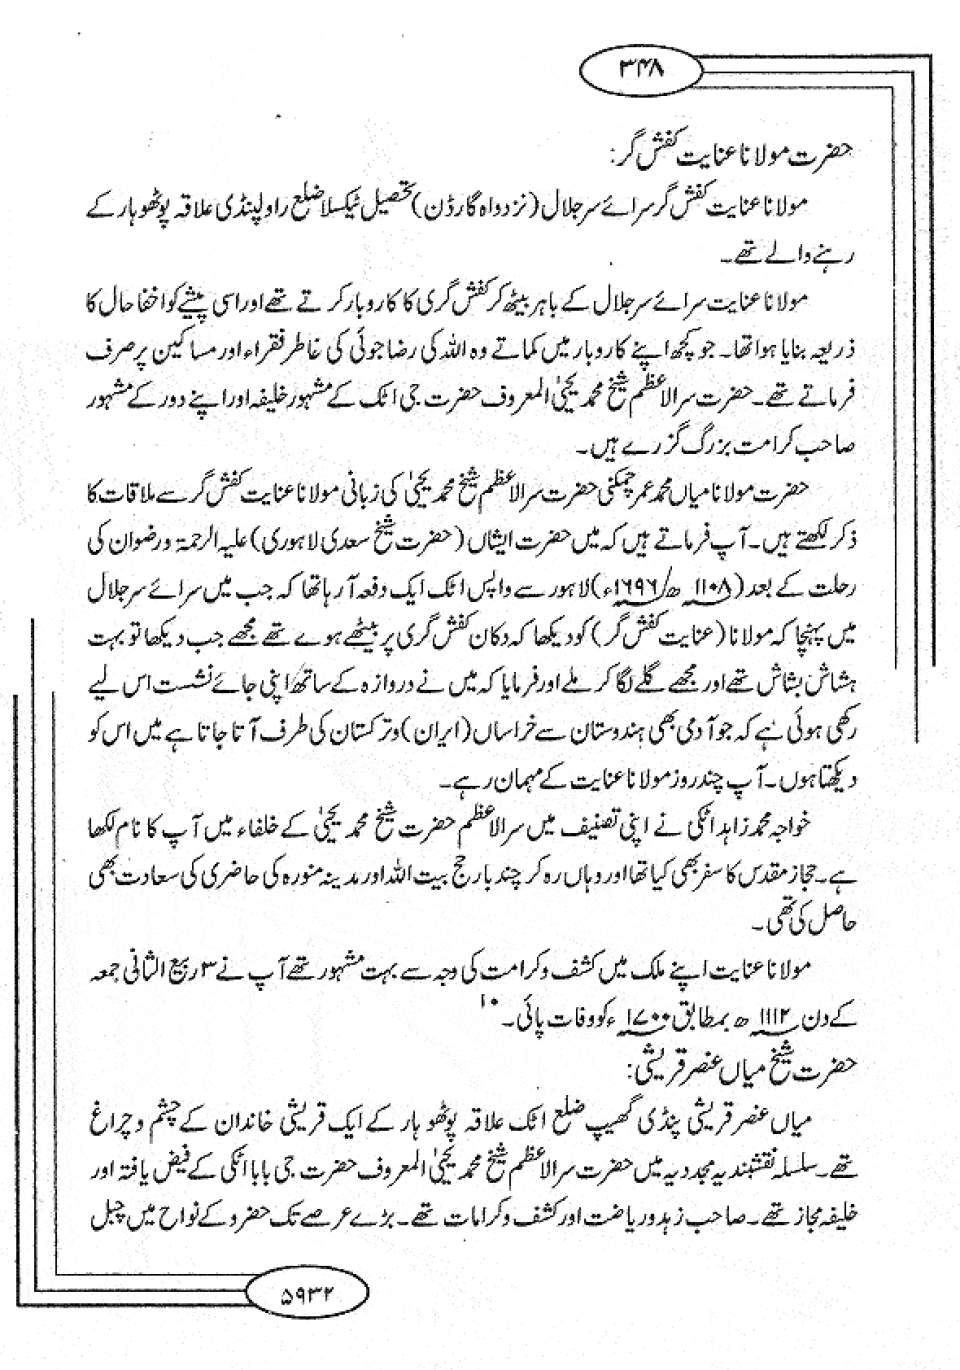 ۳۴۸
حضرت مولانا عنایت کفش گر:
مولانا عنایت کفش گر سرائے سر جلال (نزد واہ گارڈن) تحصیل ٹیکسلا ضلع راولپنڈی علاقہ پوٹھوہار کے
رہنے والے تھے۔
مولانا عنایت سرائے سر جلال کے باہر بیٹھ کر کفش گری کا کاروبار کرتے تھے اور اسی پیشے کو اخفا حال کا
ذریعہ بنایا ہوا تھا۔ جو کچھ اپنے کاروبار میں کماتے وہ اللہ کی رضا جوئی کی خاطر فقراء اور مساکین پر صرف
فرماتے تھے۔ حضرت سرالاعظم شیخ محمد یحییٰ المعروف حضرت جی اٹک کے مشہور خلیفہ اور اپنے دور کے مشہور
صاحب کرامت بزرگ گزرے ہیں۔
حضرت مولانا میاں محمد عمر چمکنی حضرت سرالاعظم شیخ محمد یحییٰ کی زبانی مولانا عنایت کفش گر سے ملاقات کا
ذکر لکھتے ہیں۔ آپ فرماتے ہیں کہ میں حضرت ایشاں (حضرت شیخ سعدی لاہوری) علیہ الرحمۃ ورضوان کی
رحلت کے بعد (۱۱۰۸ھ/۱۶۹۶ء) لاہور سے واپس اٹک ایک دفعہ آ رہا تھا کہ جب میں سرائے سر جلال
میں پہنچا کہ مولانا (عنایت کفش گر) کو دیکھا کہ دکان کفش گری پر بیٹھے ہوے تھے مجھے جب دیکھا تو بہت
ہشاش بشاش تھے اور مجھے گلے لگا کر ملے اور فرمایا کہ میں نے دروازہ کے ساتھ اپنی جائے نشست اس لیے
رکھی ہوئی ہے کہ جو آدمی بھی ہندوستان سے خراساں (ایران) وترکستان کی طرف آتا جاتا ہے میں اس کو
دیکھتا ہوں۔ آپ چند روز مولانا عنایت کے مہمان رہے۔
خواجہ محمد زاہد اٹکی نے اپنی تصنیف میں سرالاعظم حضرت شیخ محمد یحییٰ کے خلفاء میں آپ کا نام لکھا
ہے۔ حجاز مقدس کا سفر بھی کیا تھا اور وہاں رہ کر چند بار حج بیت اللہ اور مدینہ منورہ کی حاضری کی سعادت بھی
حاصل کی تھی۔
مولانا عنایت اپنے ملک میں کشف وکرامت کی وجہ سے بہت مشہور تھے آپ نے ۳ ربیع الثانی جمعہ
کے دن ۱۱۱۲ھ بمطابق ۱۷۰۰ء کو وفات پائی۔۱۰
حضرت شیخ میاں عنصر قریشی:
میاں عنصر قریشی پنڈی گھیپ ضلع اٹک علاقہ پوٹھوہار کے ایک قریشی خاندان کے چشم و چراغ
تھے۔ سلسلہ نقشبندیہ مجددیہ میں حضرت سرالاعظم شیخ محمد یحییٰ المعروف حضرت جی بابا اٹکی کے فیض یافتہ اور
خلیفہ مجاز تھے۔ صاحب زہد وریاضت اور کشف وکرامات تھے۔ بڑے عرصے تک حضرو کے نواح میں چہل
۵۹۳۲